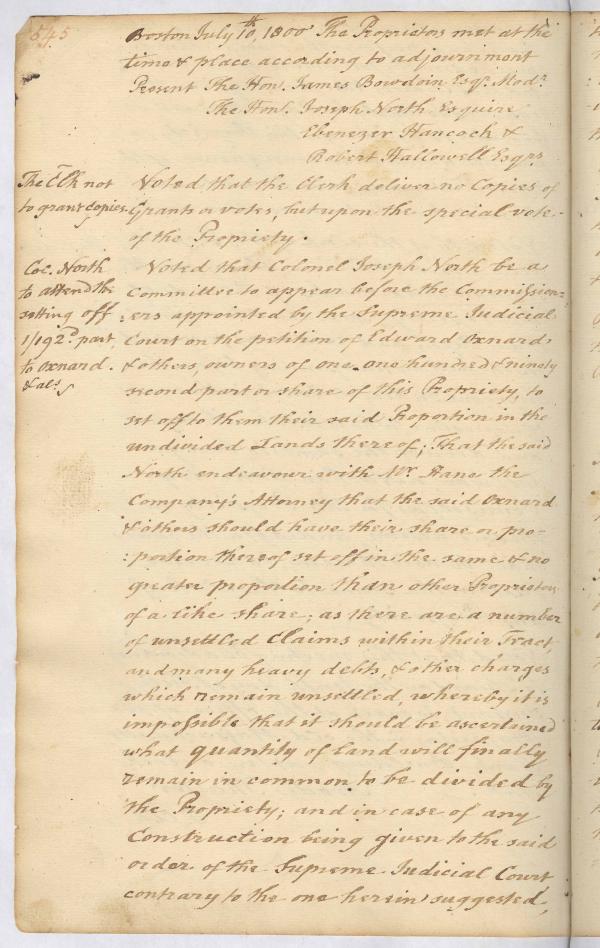 545
Boston July 10th, 1800 The Proprietors met at the
time & place according to adjournment
Present The Hon. James Bowdoin Esqr. Modr.
The Hon. Joseph North Esquire
Ebenezer Hancock &
Robert Hallowell Esqrs
The Clk not
to grant copies.
Voted that the Clerk deliver no Copies of
Grants or votes, but upon the special vote
of the Propriety.
Col. North
to attend the
setting off
1/192d part
to Oxnard
& als
Voted that Colonel Joseph North be a
Committee to appear before the Commission=
:ers appointed by the Supreme Judicial
Court on the petition of Edward Oxnard
& others, owners of one, one hundred & ninety
second part or share of this Propriety, to
set off to them their said Proportion in the
undivided Lands thereof; That the said
North endeavour with Mr. Hane the
Company's Attorney that the said Oxnard
& others should have their share or pro-
:portion thereof set off in the same & no
greater proportion than other Proprietors
of a like share; as there are a number
of unsettled Claims within their Tract,
and many heavy debts, & other charges
which remain unsettled, whereby it is
impossible that it should be ascertained
what quantity of land will finally
remain in common to be divided by
the Propriety; and in case of any
Construction being given to the said
order of the Supreme Judicial Court
contrary to the one herein suggested,